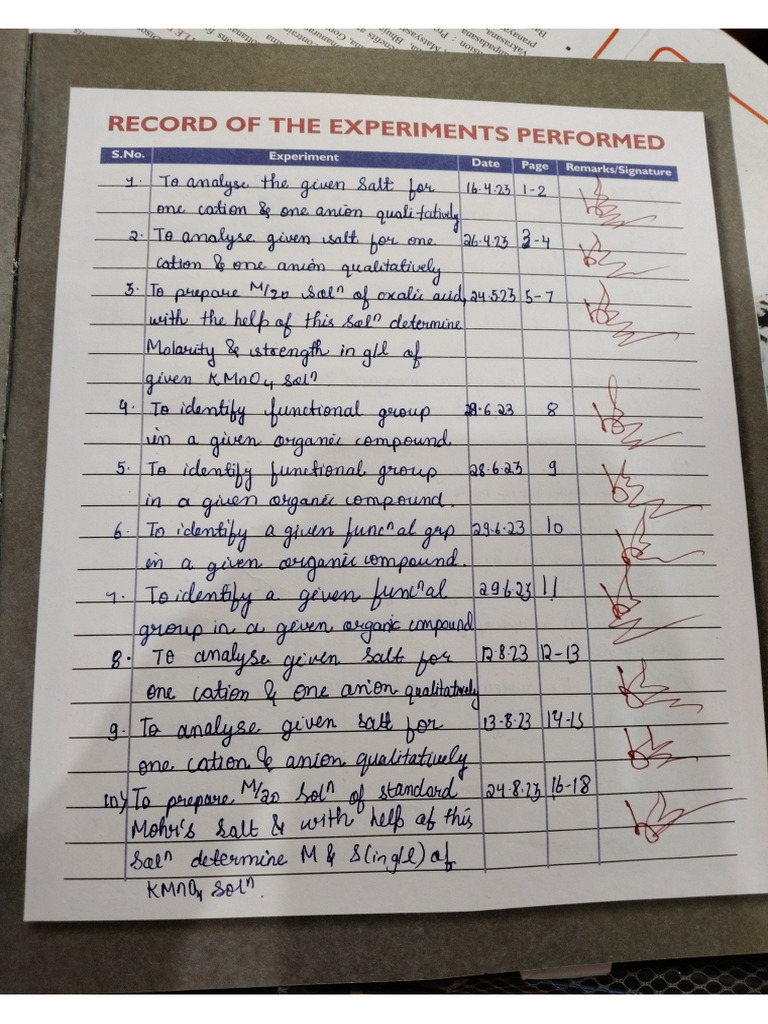 RECORD OF THE EXPERIMENTS PERFORMED
S.No. Experiment Date Page Remarks/Signature
1. To analyse the given salt for 16.4.23 1-2
one cation & one anion qualitatively
2. To analyse given salt for one 26.4.23 3-4
cation & one anion qualitatively
3. To prepare M/20 Solⁿ of oxalic acid, 24.5.23 5-7
with the help of this solⁿ determine
Molarity & strength in g/l of
given KMnO₄ solⁿ
4. To identify functional group 28.6.23 8
in a given organic compound.
5. To identify functional group 28.6.23 9
in a given organic compound.
6. To identify a given funcⁿal grp 29.6.23 10
in a given organic compound.
7. To identify a given funcⁿal 29.6.23 11
group in a given organic compound
8. To analyse given salt for 12.8.23 12-13
one cation & one anion qualitatively
9. To analyse given salt for 13-8-23 14-15
one cation & anion qualitatively
10) To prepare M/20 Solⁿ of standard 24.8.23 16-18
Mohr's salt & with help of this
Solⁿ determine M & S(in g/l) of
KMnO₄ Solⁿ.